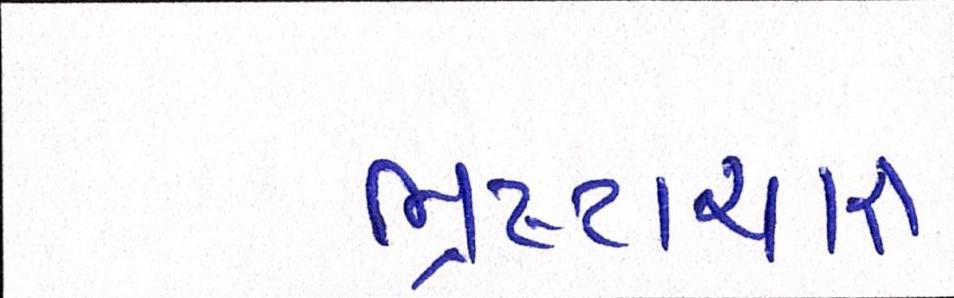 ભ્રષ્ટાચાર